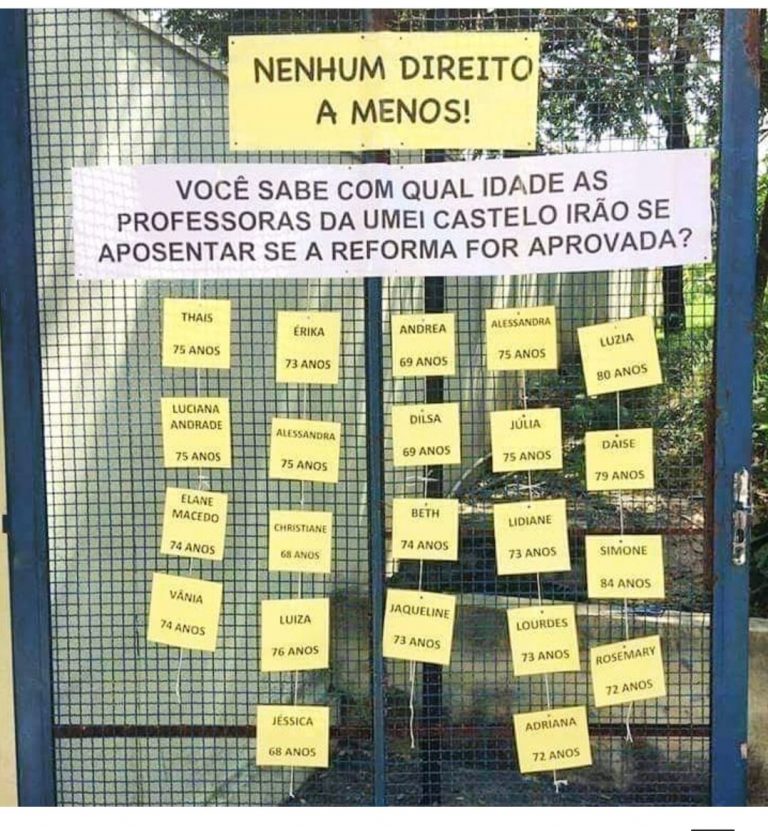 NENHUM DIREITO
A MENOS!
VOCÊ SABE COM QUAL IDADE AS
PROFESSORAS DA UMEI CASTELO IRÃO SE
APOSENTAR SE A REFORMA FOR APROVADA?
THAIS
75 ANOS
LUCIANA
ANDRADE
75 ANOS
ELANE
MACEDO
74 ANOS
VÂNIA
74 ANOS
ÉRIKA
73 ANOS
ALESSANDRA
75 ANOS
CHRISTIANE
68 ANOS
LUIZA
76 ANOS
JÉSSICA
68 ANOS
ANDREA
69 ANOS
DILSA
69 ANOS
BETH
74 ANOS
JAQUELINE
73 ANOS
ALESSANDRA
75 ANOS
JÚLIA
75 ANOS
LIDIANE
73 ANOS
LOURDES
73 ANOS
ADRIANA
72 ANOS
LUZIA
80 ANOS
DAISE
79 ANOS
SIMONE
84 ANOS
ROSEMARY
72 ANOS